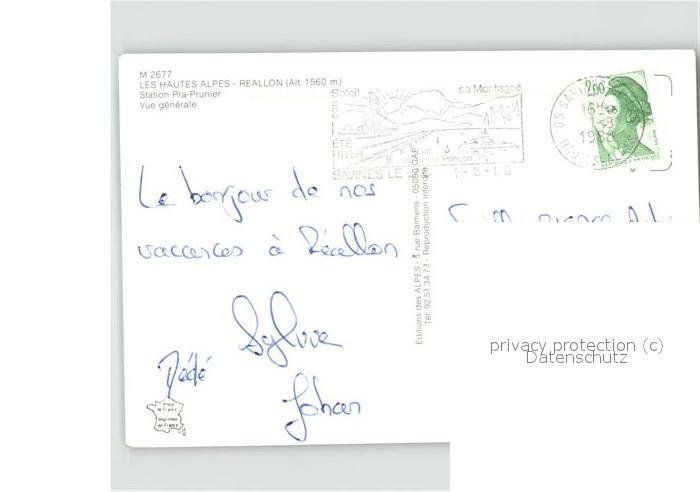 M 2677
LES HAUTES ALPES - REALLON (Alt. 1560 m)
Station Pra-Prunier
Vue générale
Soleil
sa Montagne
son
ÉTÉ
HIVER
SAVINES LE
1-8-86
2,00
05 SAVINES
16H
1-8
REPUBLIQUE FRANCAISE
Le bonjour de nos
vaccences à Réallon
Sylvie
Dédé
Johan
Editions des ALPES - 5 rue Balmens - 05000 GAP
Tél. 92.51.34.73 - Reproduction interdite
privacy protection (c)
Datenschutz